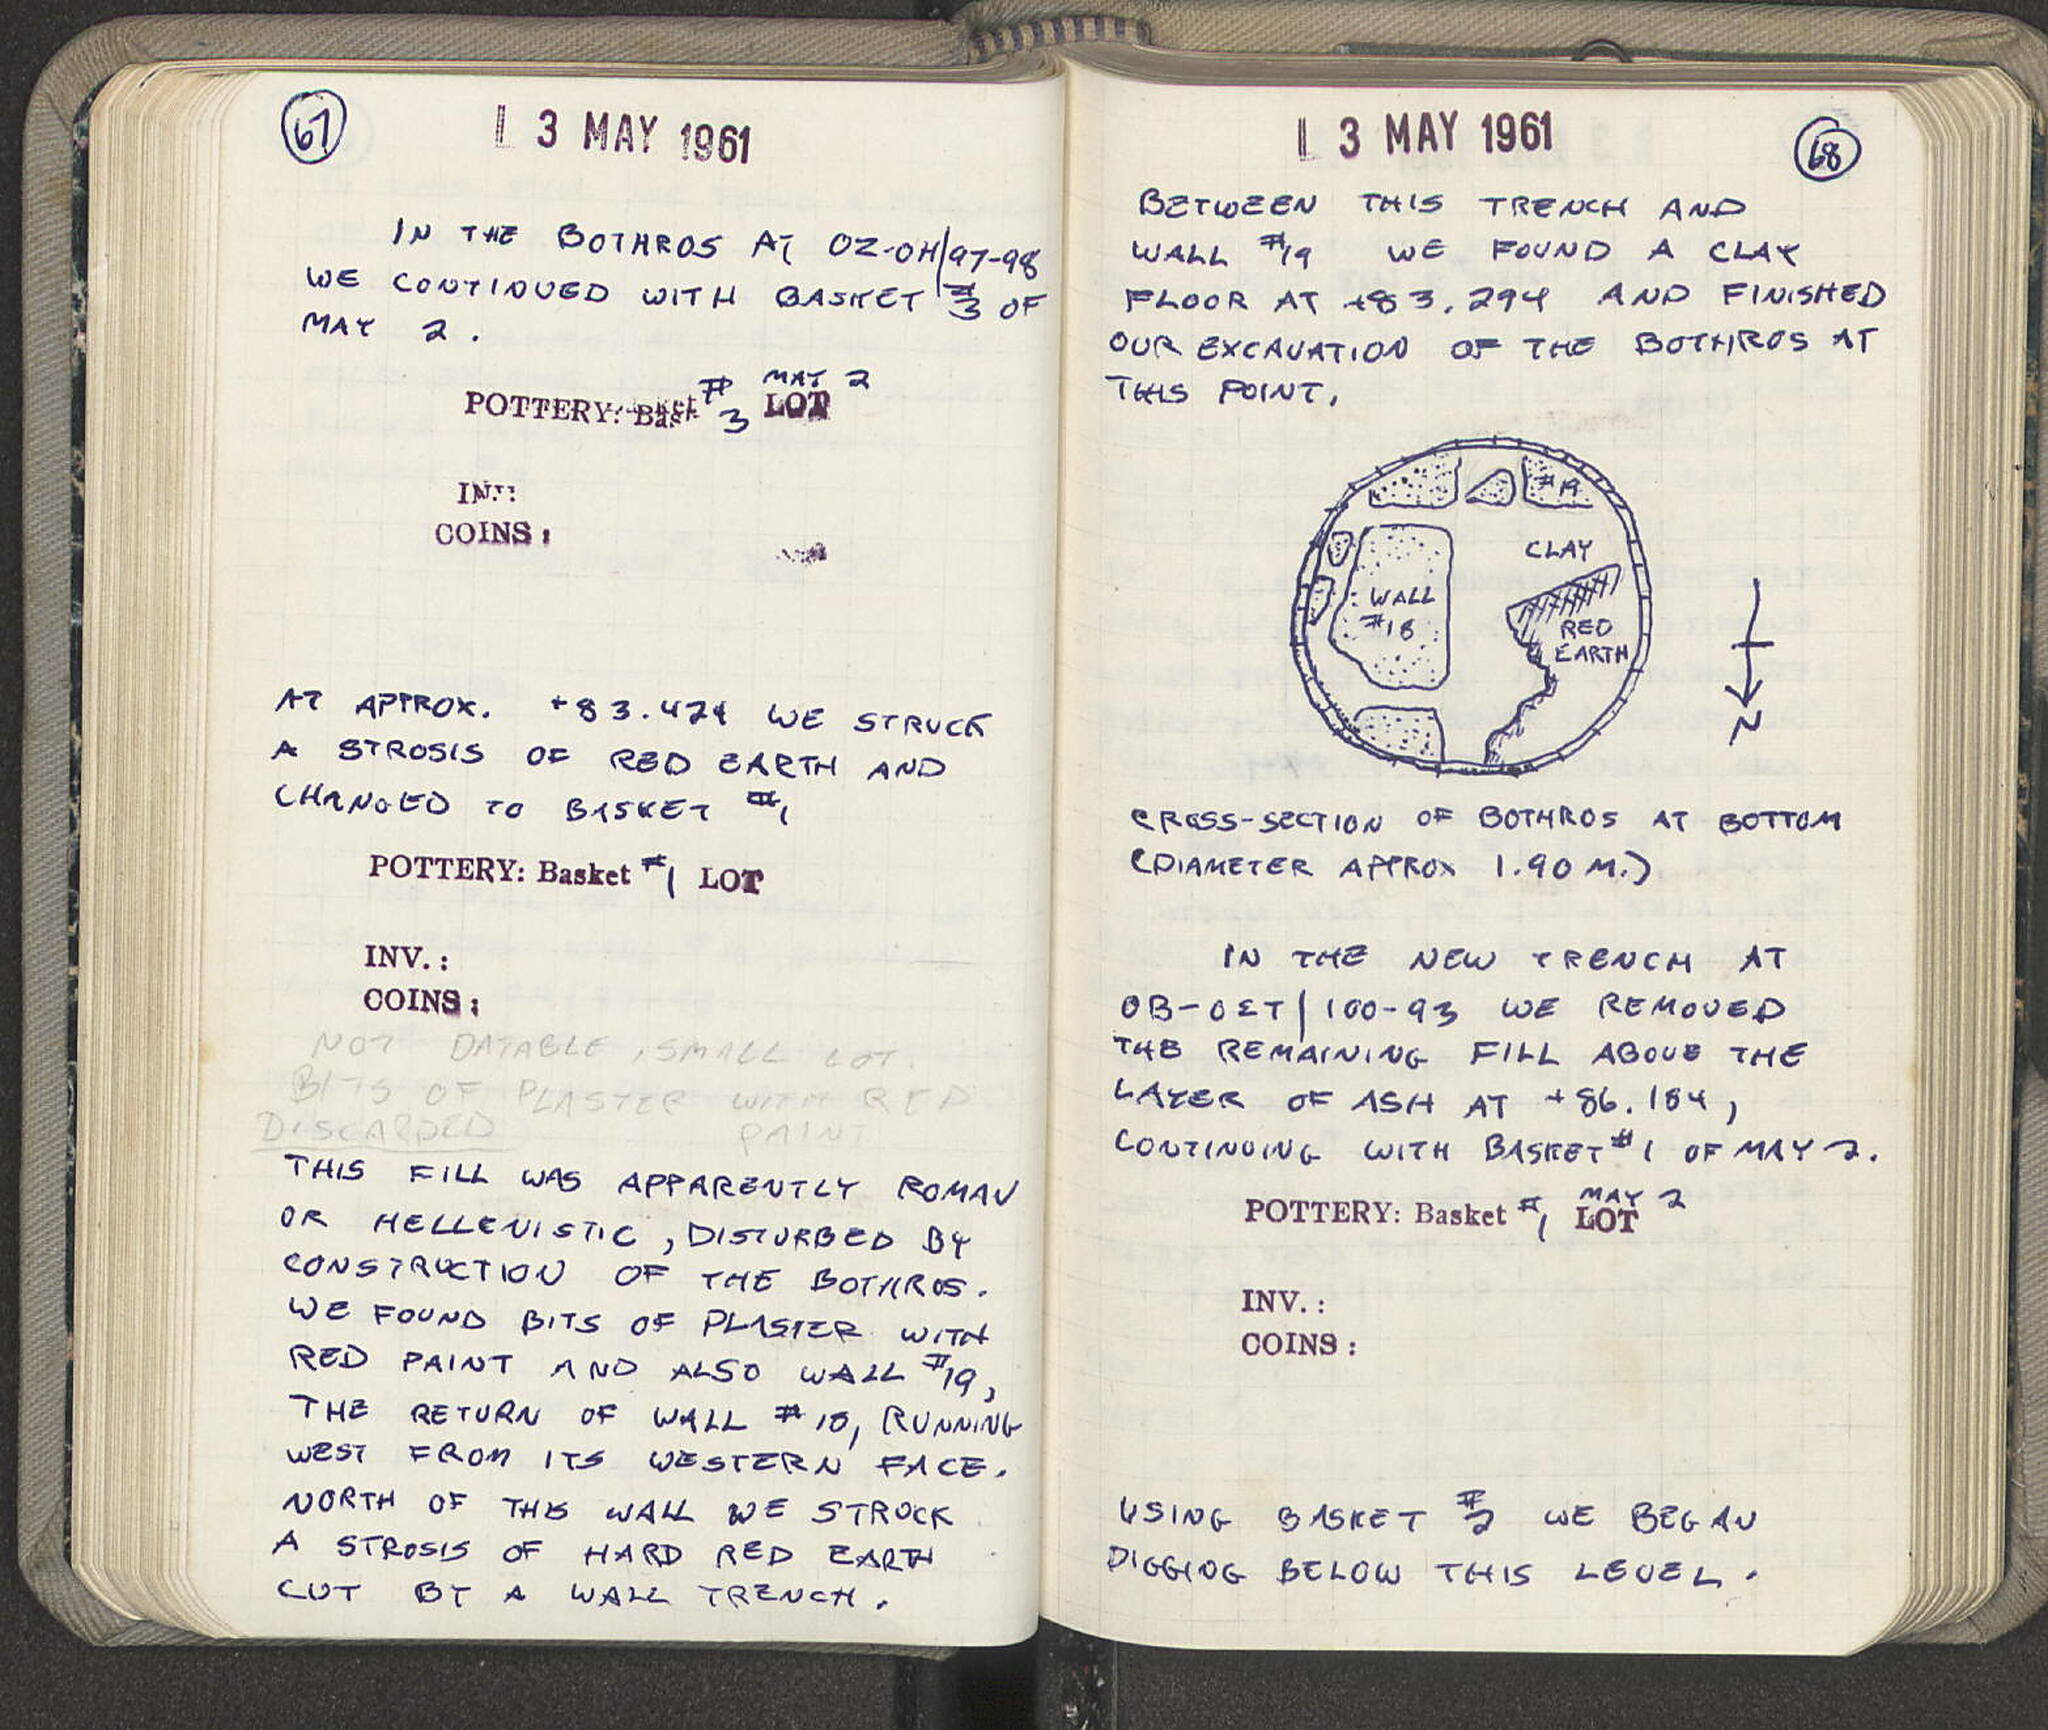 67
L 3 MAY 1961
IN THE BOTHROS AT OZ-OH/97-98
WE CONTINUED WITH BASKET #3 OF
MAY 2.
POTTERY: Basket #3 MAY 2 LOT
INV.:
COINS:
AT APPROX. +83.424 WE STRUCK
A STROSIS OF RED EARTH AND
CHANGED TO BASKET #1
POTTERY: Basket #1 LOT
INV.:
COINS:
NOT DATABLE, SMALL LOT.
BITS OF PLASTER WITH RED
PAINT
DISCARDED
THIS FILL WAS APPARENTLY ROMAN
OR HELLENISTIC, DISTURBED BY
CONSTRUCTION OF THE BOTHROS.
WE FOUND BITS OF PLASTER WITH
RED PAINT AND ALSO WALL #19,
THE RETURN OF WALL #18, RUNNING
WEST FROM ITS WESTERN FACE.
NORTH OF THIS WALL WE STRUCK
A STROSIS OF HARD RED EARTH
CUT BY A WALL TRENCH.
L 3 MAY 1961
68
BETWEEN THIS TRENCH AND
WALL #19 WE FOUND A CLAY
FLOOR AT +83.294 AND FINISHED
OUR EXCAVATION OF THE BOTHROS AT
THIS POINT.
#19
CLAY
WALL
#18
RED
EARTH
N
CROSS-SECTION OF BOTHROS AT BOTTOM
(DIAMETER APPROX 1.90 M.)
IN THE NEW TRENCH AT
OB-OΣT/100-93 WE REMOVED
THE REMAINING FILL ABOVE THE
LAYER OF ASH AT +86.184,
CONTINUING WITH BASKET #1 OF MAY 2.
POTTERY: Basket #1 MAY 2 LOT
INV.:
COINS:
USING BASKET #2 WE BEGAN
DIGGING BELOW THIS LEVEL.